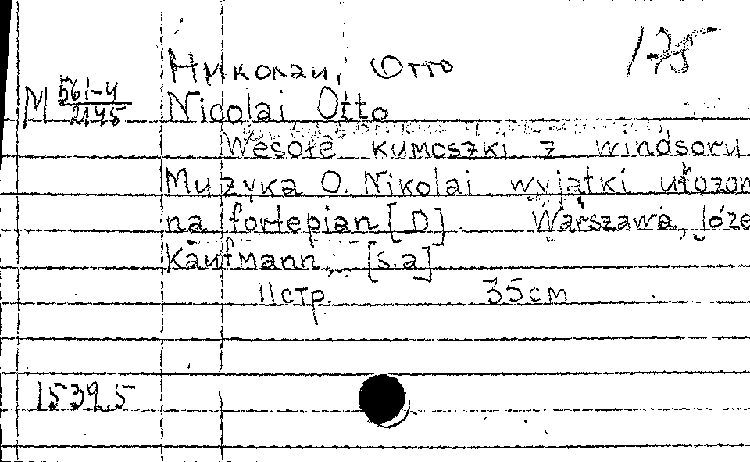 Николаи, Отто 175
М 561-4/2145 Nicolai Otto
Wesołe kumoszki z windsoru
Muzyka O. Nikolai wyjątki ułożon
na fortepian [D] Warszawa, Józe
Kaufmann, [s.a]
11стр. 35см
15395